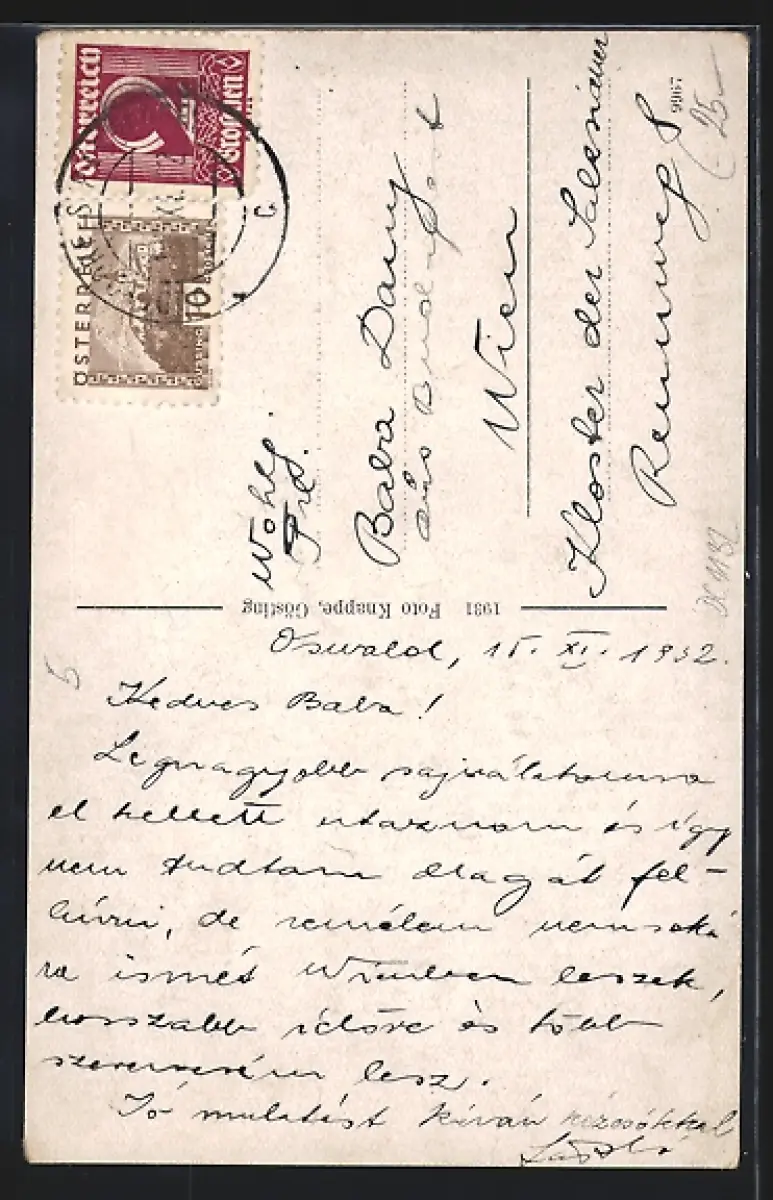 Österreich
2
Groschen
ÖSTERREICH
10
GROSCHEN
GÜSSING
C
Wohlg.
Frl.
Baba Dany
aus Budapest
Wien
Kloster der Salesianer
Rennweg 8
9967
(25-
1931 Foto Knappe, Gösting
5
Oswald, 15. XI. 1932.
Kedves Baba!
Legnagyobb sajnálatomra
el kellett utaznom és így
nem tudtam Magát fel-
hívni, de remélem nemsoká
ra ismét Wienben leszek,
hosszabb időre és több
szerencsém lesz.
Jó mulatást kíván kézcsókkal
László